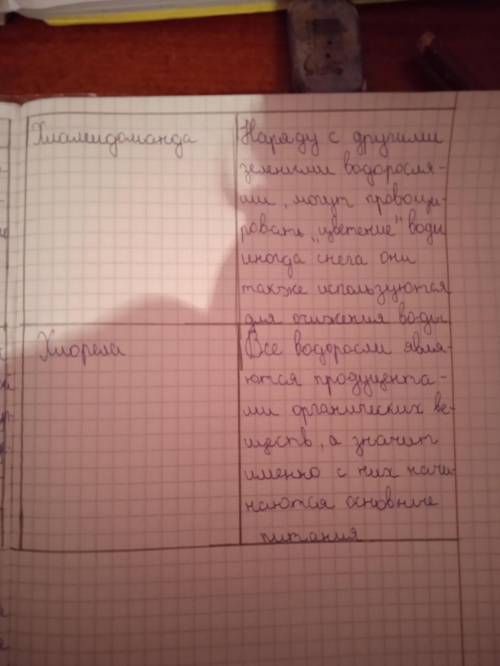 Хламидоманда
Наряду с другими
земними водоросля-
ми, могут провоци-
ровать „цветение" води
иногда снега они
также используются
для очижения воды
Хлорела
Все водоросли явля-
ются продуцента-
ми органических ве-
ществ, а значит
именно с них начи-
наются основные
питания